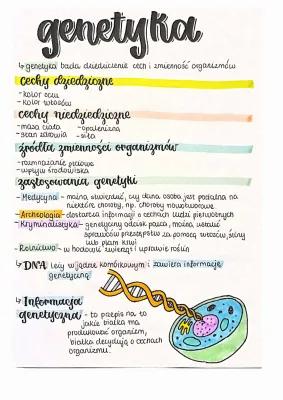 genetyka
↳ genetyka bada dziedziczenie cech i zmienność organizmów
cechy dziedziczne
- kolor oczu
- kolor włosów
cechy niedziedziczne
- masa ciała - opalenizna
- stan zdrowia - siła
źródła zmienności organizmów
- rozmnażanie płciowe
- wpływ środowiska
zastosowania genetyki
- Medycyna - można stwierdzić, czy dana osoba jest podatna na
niektóre choroby, np. choroby nowotworowe
- Archeologia - dostarcza informacji o cechach ludzi pierwotnych
- Kryminalistyka - genetyczny odcisk palca, można ustalić
sprawców przestępstw za pomocą włosów, śliny
lub plam krwi
- Rolnictwo - w hodowli zwierząt i uprawie roślin
↳ DNA leży w jądrze komórkowym i zawiera informację
genetyczną
↳ Informacja
genetyczna - to przepis na to
jakie białka ma
produkować organizm,
białka decydują o cechach
organizmu.